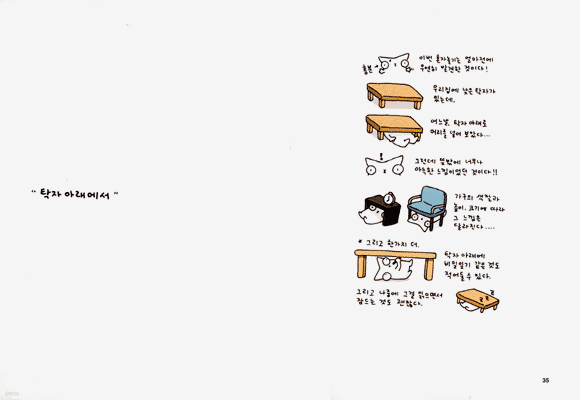 “ 탁자 아래에서 ”
이번 혼자놀기는 얼마전에
우연히 발견한 것이다!
흥분
우리집에 낮은 탁자가
있는데,
어느날, 탁자 아래로
머리를 넣어 보았다...
그런데 뜻밖에 너무나
아늑한 느낌이었던 것이다!!
가구의 색깔과
높이, 크기에 따라
그 느낌은
달라진다....
* 그리고 한가지 더.
탁자 아래에
비밀일기 같은 것도
적어둘 수 있다.
그리고 나중에 그걸 읽으면서
잠드는 것도 괜찮다.
z z z
35